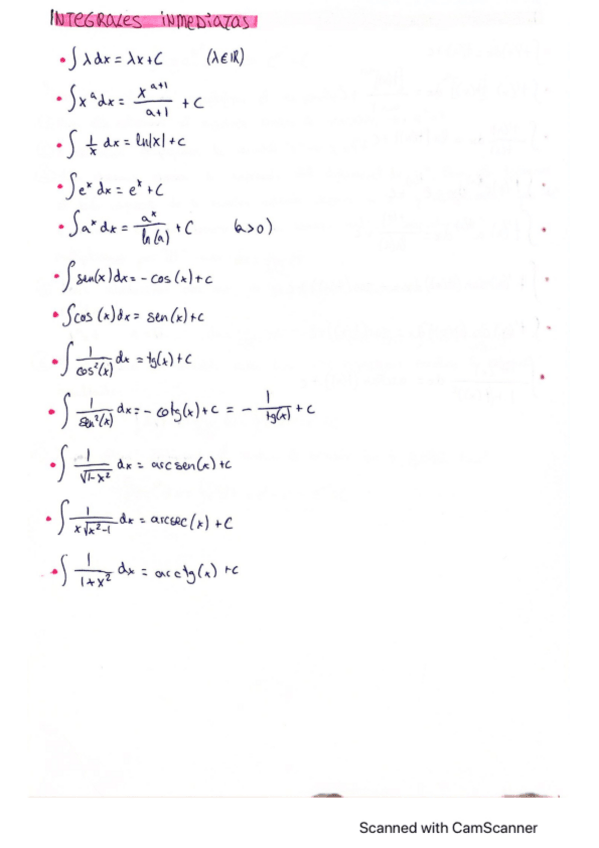 INTEGRALES INMEDIATAS
• ∫ λ dx = λx + C (λ ∈ ℝ)
• ∫ x^a dx = x^(a+1)/(a+1) + C
• ∫ 1/x dx = ln|x| + C
• ∫ e^x dx = e^x + C
• ∫ a^x dx = a^x/ln(a) + C (a>0)
• ∫ sen(x) dx = - cos(x) + C
• ∫ cos(x) dx = sen(x) + C
• ∫ 1/cos²(x) dx = tg(x) + C
• ∫ 1/sen²(x) dx = - cotg(x) + C = - 1/tg(x) + C
• ∫ 1/√(1-x²) dx = arcsen(x) + C
• ∫ 1/(x√(x²-1)) dx = arcsec(x) + C
• ∫ 1/(1+x²) dx = arctg(x) + C
Scanned with CamScanner